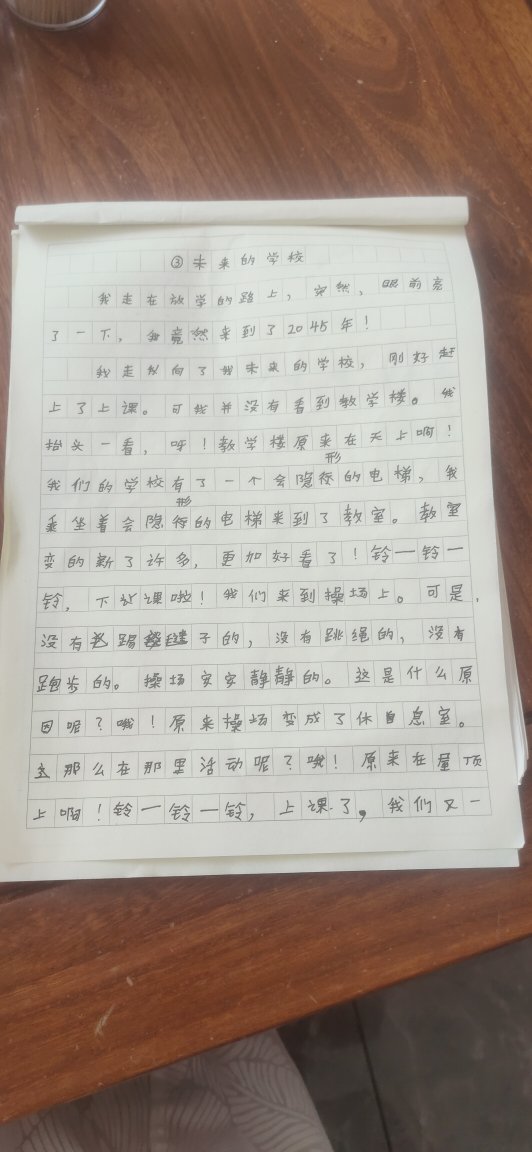 ③未来的学校
我走在放学的路上,突然,眼前亮
了一下,我竟然来到了2045年!
我走向了我未来的学校,刚好赶
上了上课。可我并没有看到教学楼。我
抬头一看,呀!教学楼原来在天上啊!
我们的学校有了一个会隐形的电梯,我
乘坐着会隐形的电梯来到了教室。教室
变的新了许多,更加好看了!铃一铃一
铃,下课啦!我们来到操场上。可是,
没有踢毽子的,没有跳绳的,没有
跑步的。操场安安静静的。这是什么原
因呢?哦!原来操场变成了休息室。
那么在那里活动呢?哦!原来在屋顶
上啊!铃一铃一铃,上课了,我们又一